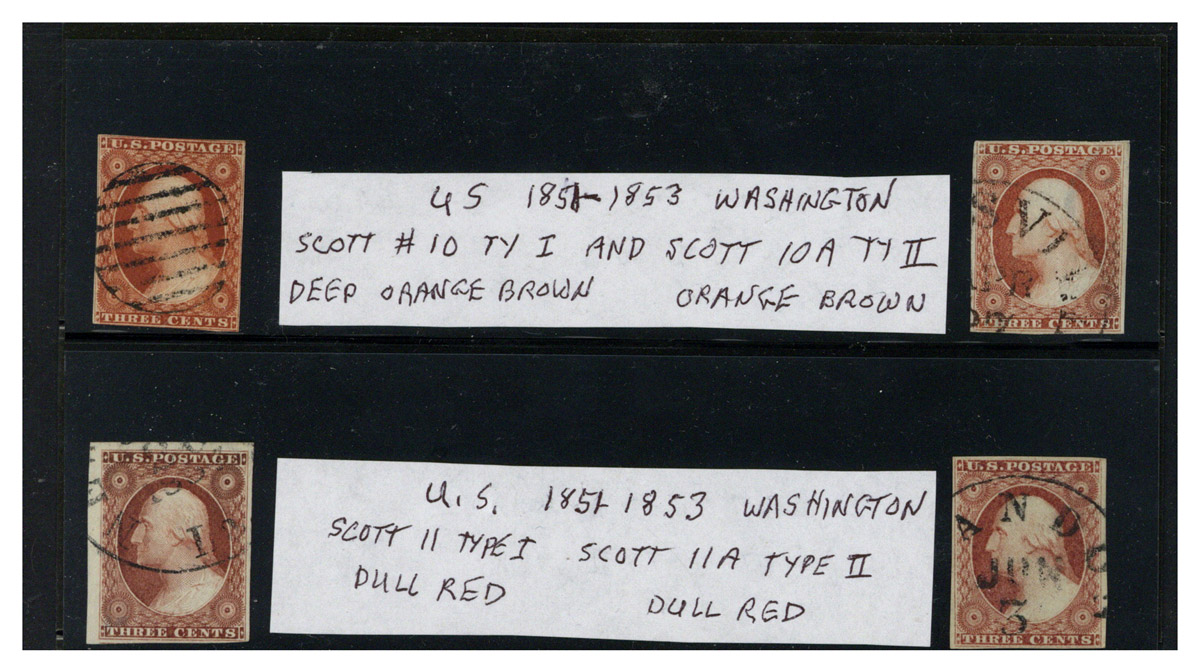 U.S. POSTAGE
THREE CENTS
US 1851-1853 WASHINGTON
SCOTT #10 TY I AND SCOTT 10A TY II
DEEP ORANGE BROWN ORANGE BROWN
U.S. POSTAGE
V
THREE CENTS
U.S. POSTAGE
THREE CENTS
U.S. 1851 1853 WASHINGTON
SCOTT 11 TYPE I SCOTT 11A TYPE II
DULL RED DULL RED
U.S. POSTAGE
ANDU
JUN
3
THREE CENTS